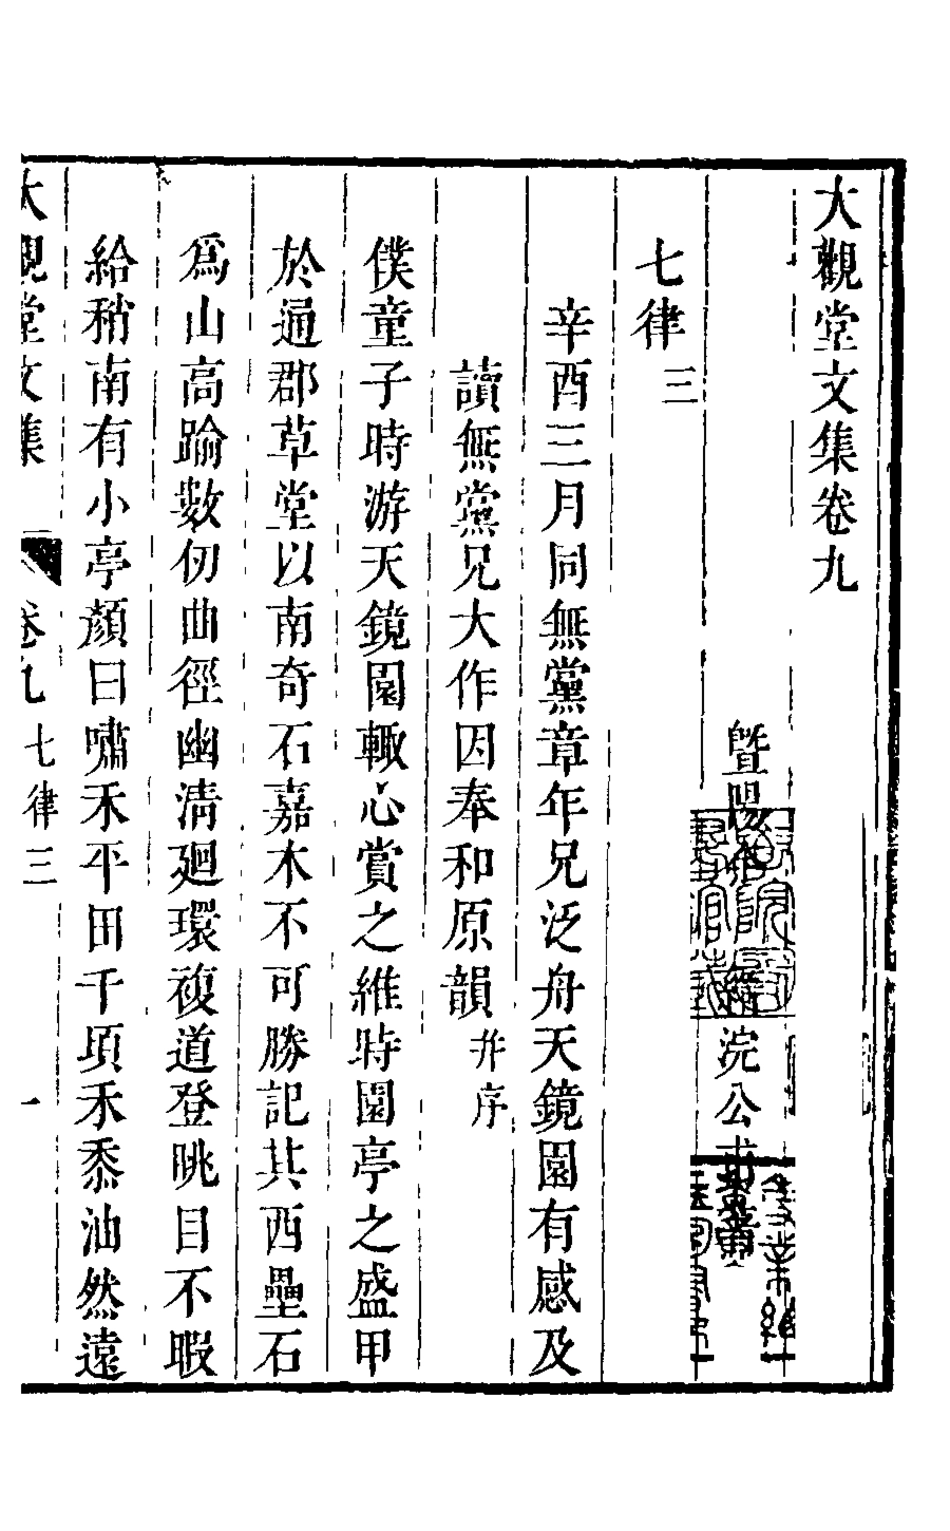 大觀堂文集卷九
暨陽余縉浣公甫著
七律三
辛酉三月同無黨章年兄泛舟天鏡園有感及
讀無黨兄大作因奉和原韻并序
僕童子時游天鏡園輙心賞之維時園亭之盛甲
於通郡草堂以南奇石嘉木不可勝記其西壘石
爲山高踰數仞曲徑幽淸廻環複道登眺目不暇
給稍南有小亭顏曰嘯禾平田千頃禾黍油然遠
大觀堂文集 卷九 七律三 一